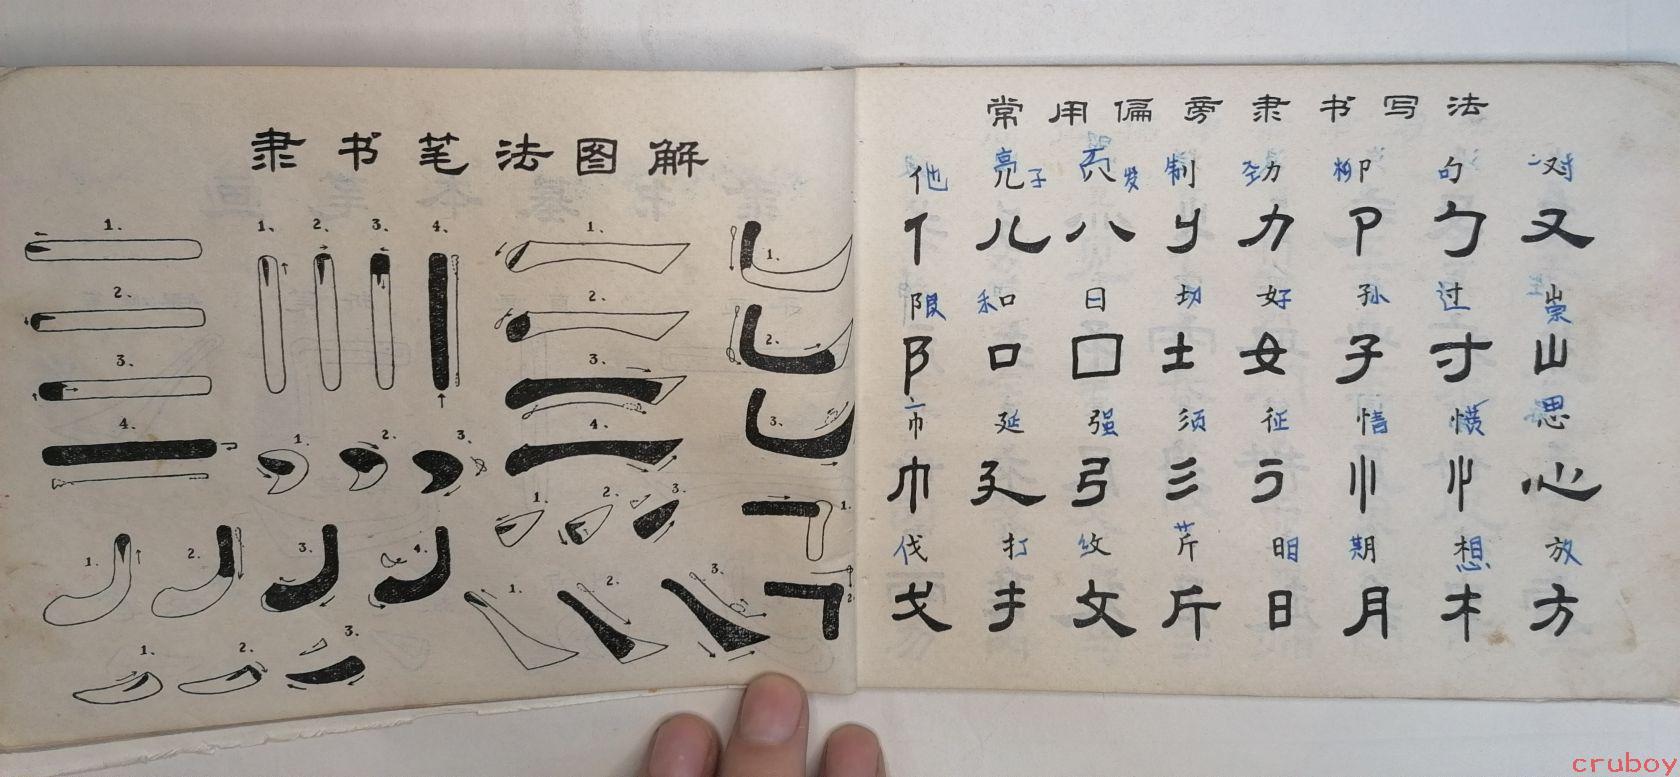 隶书笔法图解
1.
2.
3.
4.
1、
2.
3.
4.
1.
2.
3.
4.
1.
2.
3.
1.
2.
3.
1.
2.
3.
1.
2.
3.
4.
1.
2.
3.
1.
2.
1.
2.
3.
常用偏旁隶书写法
他 亮 制 劲 柳 句 对
亻 儿 八 刂 力 卩 勹 又
限 和 曰 均 好 孙 过 崇
阝 口 囗 土 女 子 寸 山
市 延 强 须 征 情 愤 思
巾 廴 弓 彡 彳 忄 忄 心
伐 打 纹 芹 明 期 想 放
戈 扌 文 斤 日 月 木 方
cruboy